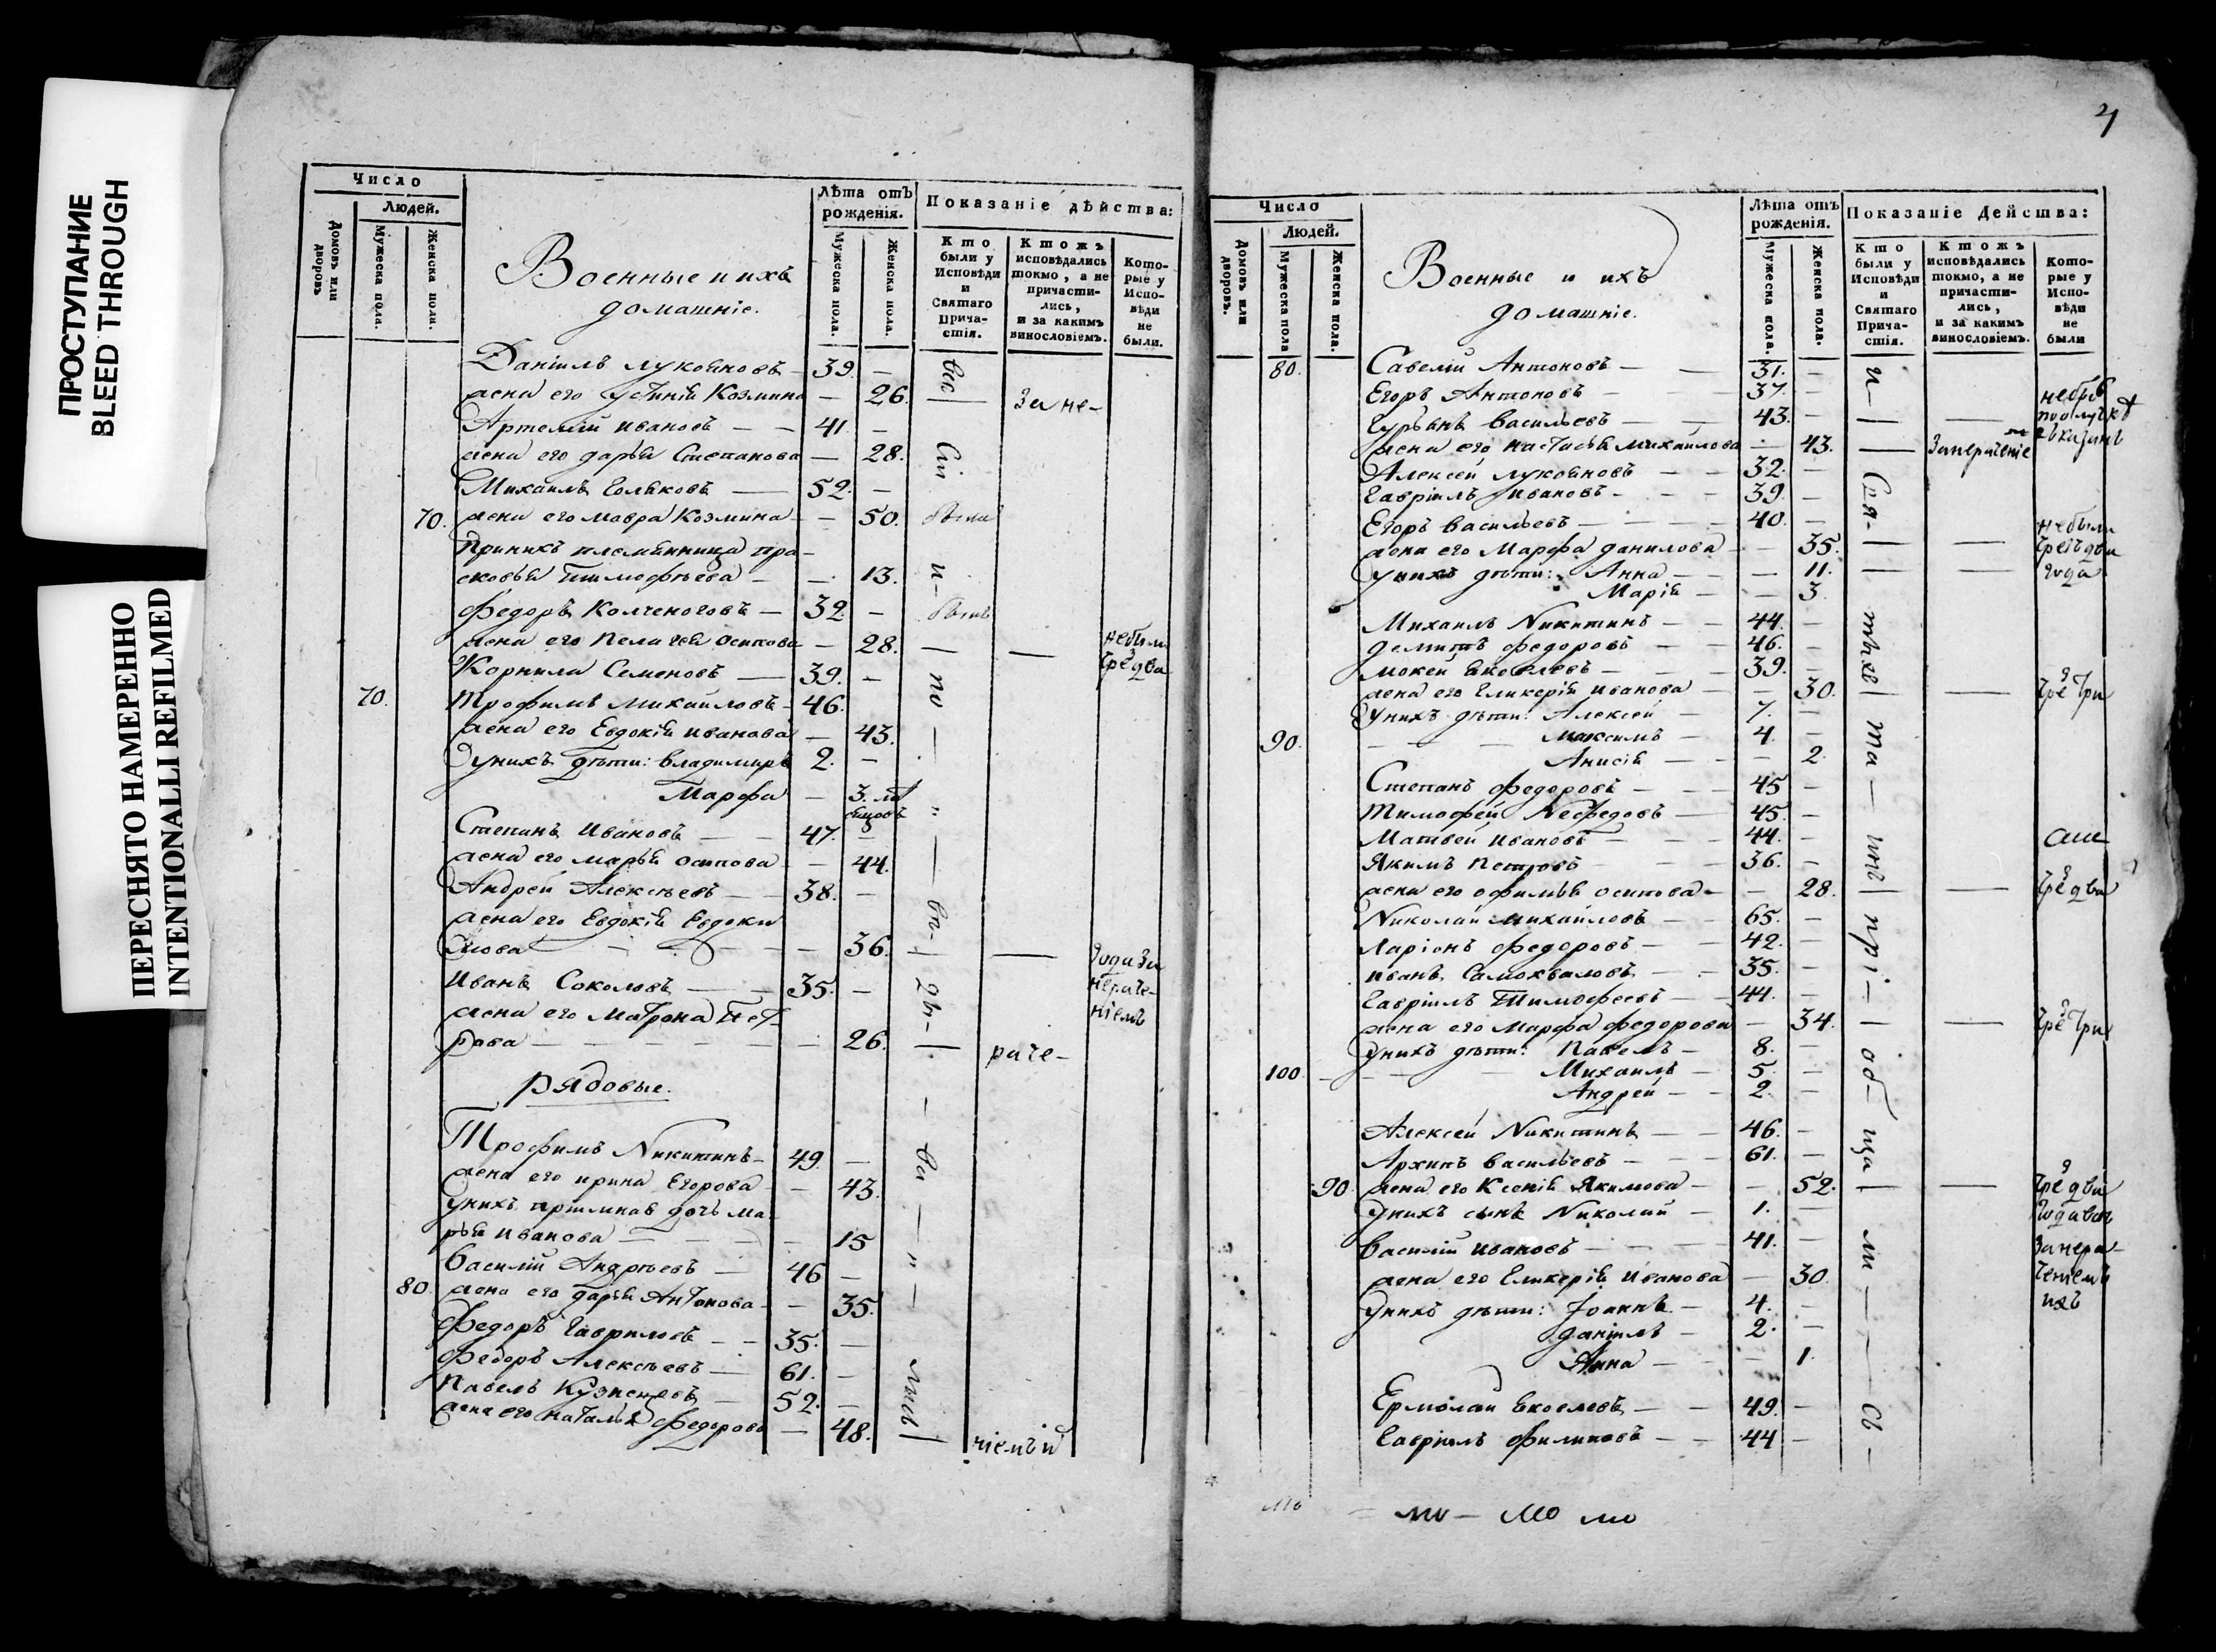 ПРОСТУПАНИЕ
BLEED THROUGH
ПЕРЕСНЯТО НАМЕРЕННО
INTENTIONALLI REFILMED
Число
Людей.
Домовъ или дворовъ
Мужеска пола.
Женска поли.
Военные и ихъ
домашніе.
Лѣта отъ рожденія.
Мужеска пола.
Женска пола.
Показаніе дѣйства:
Кто были у Исповѣди и Святаго Прича-стія.
Ктожъ исповѣдались токмо, а не причасти-лись, и за какимъ винословіемъ.
Кото-рые у Испо-вѣди не были.
Даніилъ Лукояновъ — 39. —
жена его Устинія Козмина — 26. — За не-
Артемій Ивановъ — — 41 —
жена его Дарья Степанова — 28.
Михаилъ Голяковъ — 52. —
70. жена его Мавра Козмина — 50.
При нихъ племянница Пра-
сковья Тимофеева — — 13.
Федоръ Колченоговъ — 32. —
жена его Пелагея Осипова — 28. — — небыли
Корнила Семеновъ — 39. — чрез два
70. Трофимъ Михайловъ — 46.
жена его Евдокія Иванова — 43.
У нихъ дѣти: Владимиръ 2. —
Марфа — 3.
Степанъ Ивановъ — — 47. —
жена его Марья Осипова — 44.
Андрей Алексѣевъ — 38. —
жена его Евдокія Евдоки
мова — — — 36. — — года за
Иванъ Соколовъ — 35. — нераче-
жена его Матрона Пет- ніемъ
рова — — — — 26. — раче-
Рядовые.
Трофимъ Никитинъ — 49. —
жена его Ирина Егорова — 43.
У нихъ дочь Ма
рья Иванова — — — 15
Василій Андрѣевъ — 46 —
80. жена его Дарья Антонова — 35.
Федоръ Гавриловъ — — 35. —
Федоръ Алексѣевъ — 61. —
Павелъ Кузнецовъ — 52. —
жена его Наталья Федорова — 48. — ніемъ
4
Число
Людей.
Домовъ или дворовъ.
Мужеска пола
Женска пола.
Военные и ихъ
домашніе.
Лѣта отъ рожденія.
Мужеска пола.
Женска пола.
Показаніе Дейсмва:
Кто были у Исповѣди и Святаго Прича-стія.
Ктожъ исповѣдались токмо, а не причасти-лись, и за какимъ винословіемъ.
Кото-рые у Испо-вѣди не были
80. Савелій Антоновъ — — 31. —
Егоръ Антоновъ — — 37. —
Гурьянъ Васильевъ — — 43. —
жена его Настасья Михайлова — 43. —
Алексей Лукояновъ — — 32. —
Гавріилъ Ивановъ — — 39. —
Егоръ Васильевъ — — 40. — небыли
жена его Марфа Данилова — — 35. — — чрезъ два
У нихъ дѣти: Анна — — 11. — — года
Марія — — 3.
Михаилъ Никитинъ — — 44. —
Федоровъ — — 46. —
Мокей Яковлевъ — — 39. —
жена его Гликерія Иванова — — 30. — чрез три
У нихъ дѣти: Алексей — 7. —
90. Максимъ — 4. —
Анисія — — 2.
Степанъ Федоровъ — — 45 —
Тимофей Нефедовъ — 45. —
Матвей Ивановъ — — 44. —
Якимъ Петровъ — — 36. —
жена его Офимья Осипова — — 28. — чрез два
Николай Михайловъ — 65. —
Ларіонъ Федоровъ — — 42. —
Иванъ Самохваловъ — — 35. —
Гавріилъ Тимофеевъ — 44. —
жена его Марфа Федорова — 34. — — чрез три
У нихъ дѣти: Павелъ — 8. —
100. Михаилъ — 5. —
Андрей — — 2. —
Алексей Никитинъ — — 46. —
Архипъ Васильевъ — — 61. —
90. жена его Ксенія Якимова — — 52. — — чрез два
У нихъ сынъ Николай — 1. —
Василій Ивановъ — — 41. — за нера-
жена его Гликерія Иванова — 30. ченіемъ
У нихъ дѣти: Іоаннъ — 4. — ихъ
Даніилъ — 2. —
Анна — — 1.
Ермолай Яковлевъ — — 49. —
Гавріилъ Филиповъ — — 44 —